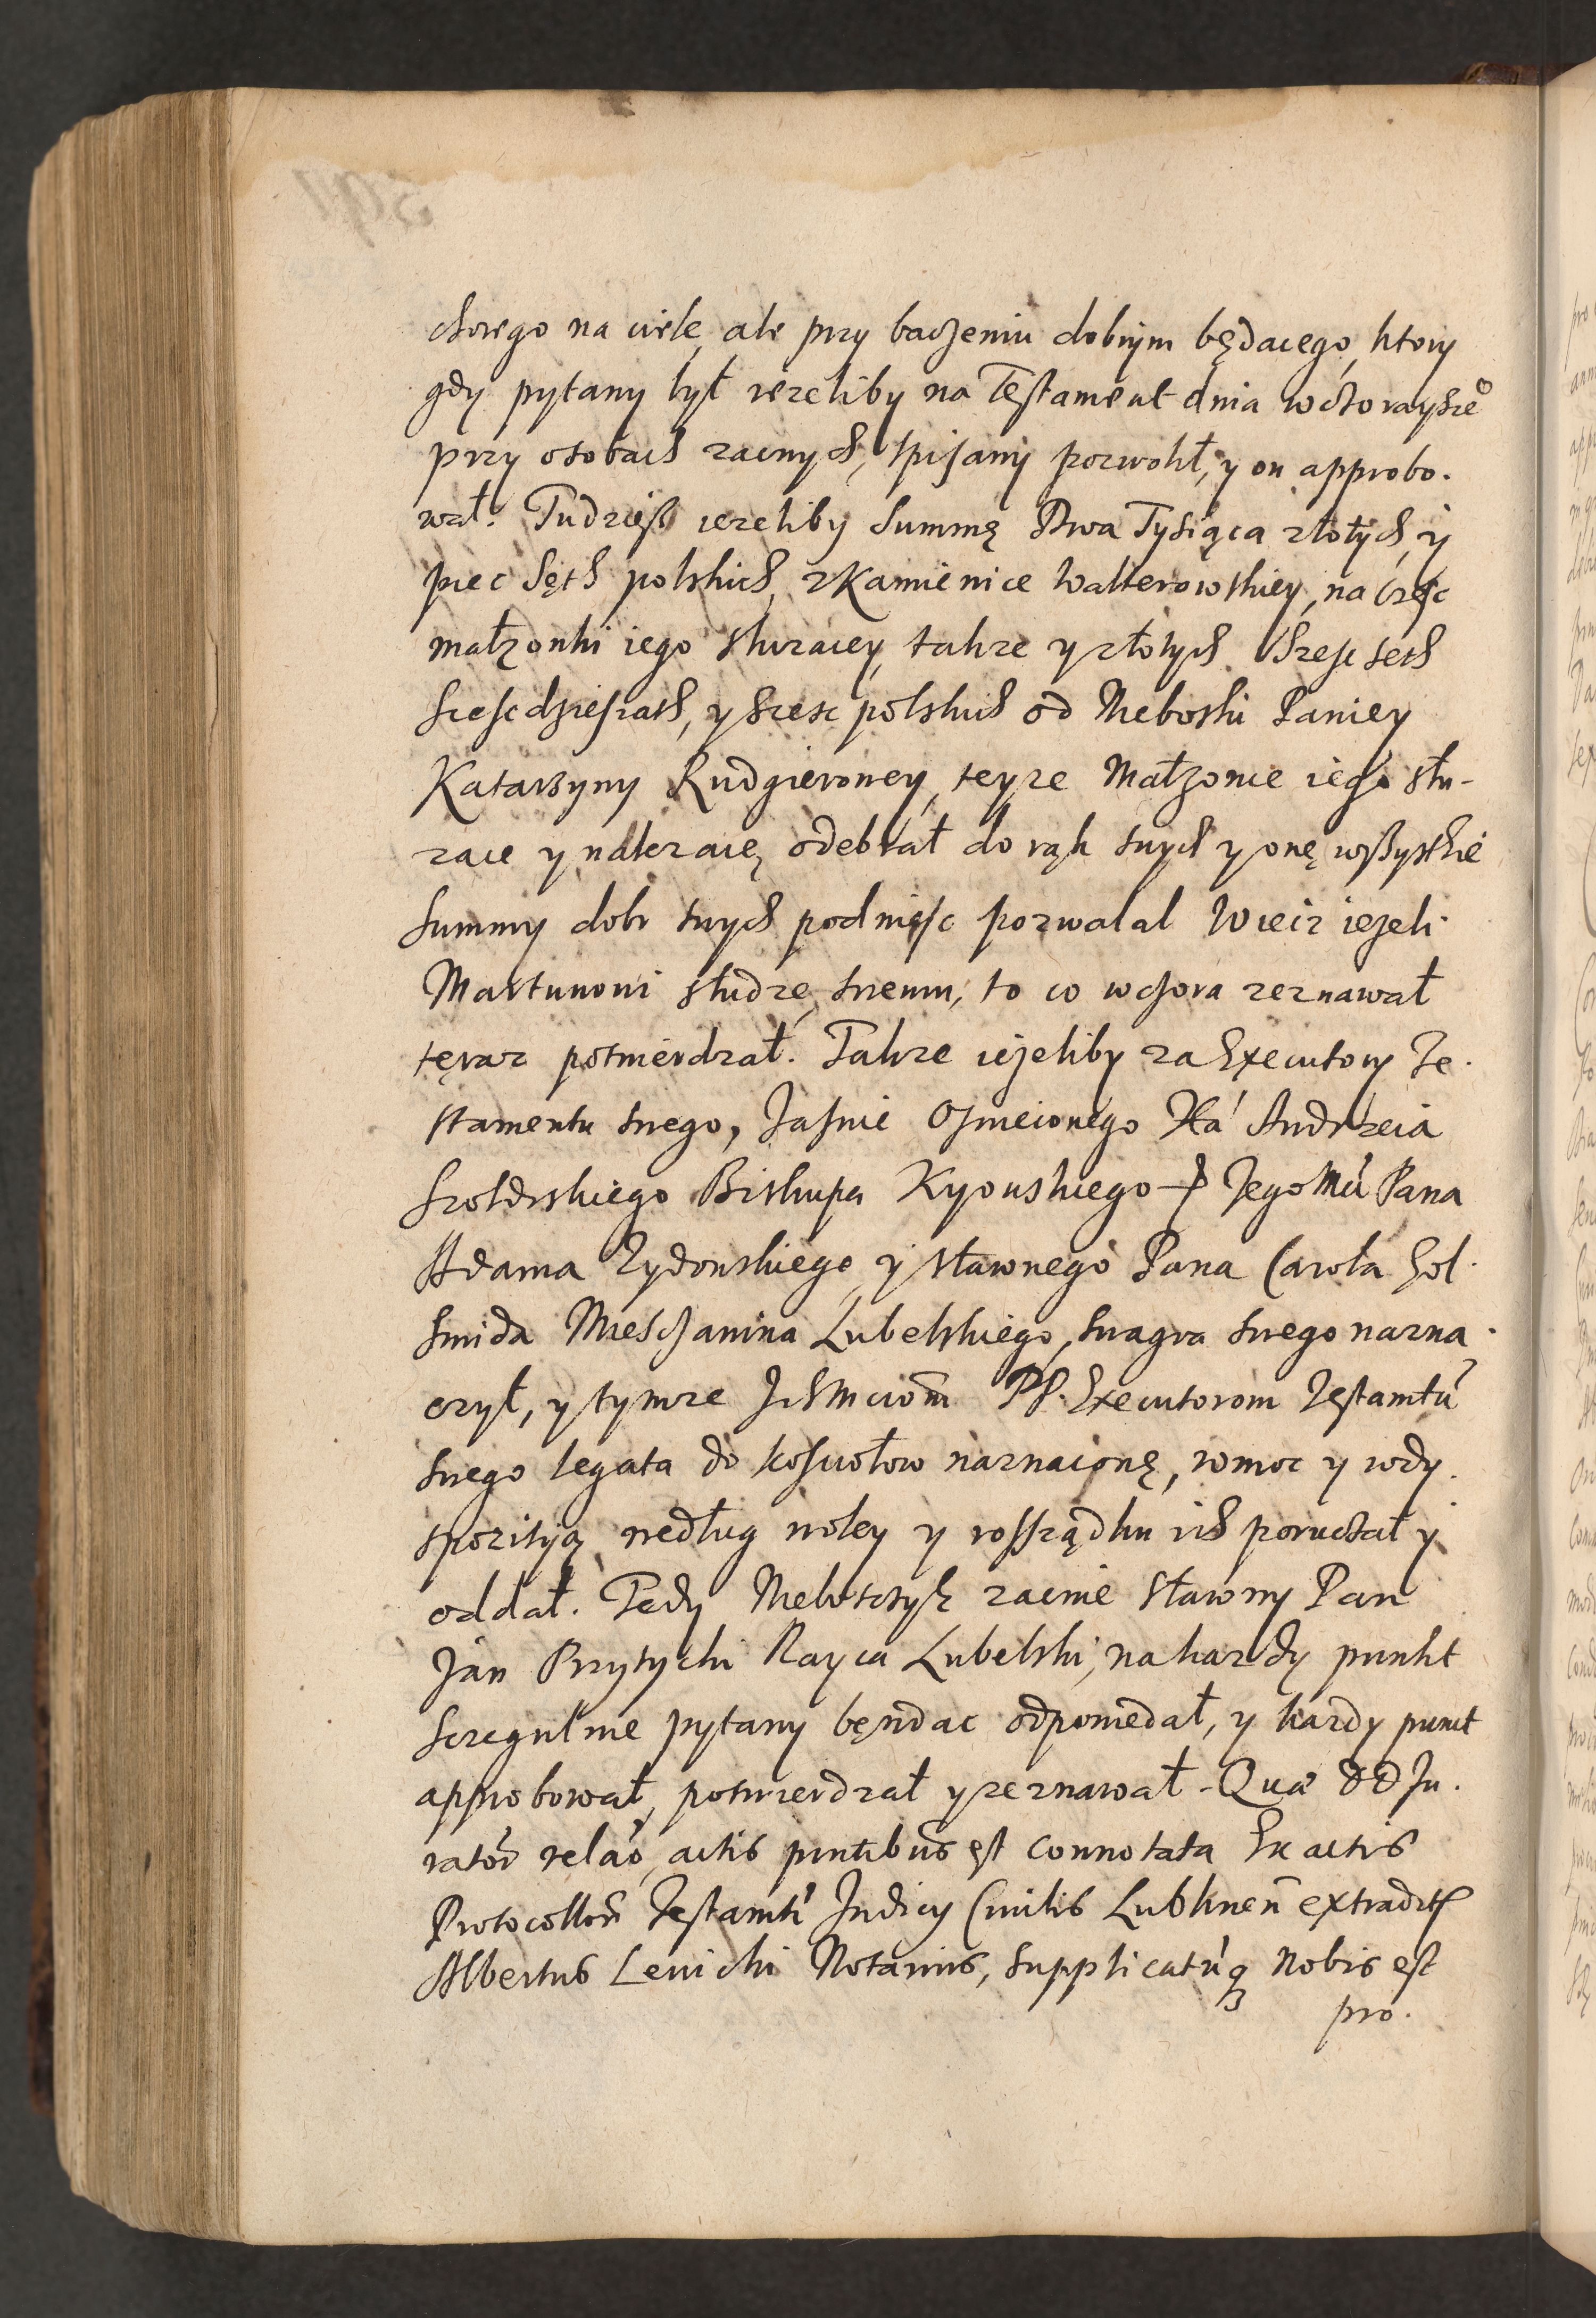 chorego na ciele ale przy baczeniu dobrym będącego, ktory
gdy pytany był iezeliby na Testament dnia wczoraysze⁰
przy osobach zacnych, spisany pozwolił, y on approbo.
wał. Tudziesz iezeliby Summę Dwa Tysiąca złotych, y
piec Seth polskich, z Kamienice Walterowskiey, na częsc
małzonki iego sluzacey, takze y złotych Szesc seth
szescdziesiath, y szesc polskich od Nieboski Paniey
Katarzyny Rudgierowey, teyze Małzonce iego słu-
zace y nalezacę odebrał do rąk swych y onę wszystkie
Summy dobr swych podniesc pozwalal Wiecz iezeli
Martunowi słudze swemu, to co wczora zeznawał
teraz potwierdzał. Takze iezeliby za Executory Te.
stamentu swego, Jasnie Oswieconego Xa Andrzeia
Szoldrskiego Biskupa Kyowskiego Jego Mci Pana
Adama Zydowskiego y sławnego Pana Carola Gol.
smida Miesczanina Lubelskiego, swagra swego nazna.
czył, y tymze IchMciom PP. Executorom Testamtu
swego legata do kosciołow naznaczonę, w moc y w dy.
spozityą według woley y rossządku ich poruczał y
oddał. Tedy Nieboszczyk zacnie Sławny Pan
Jan Przytycki Rayca Lubelski, na kazdy punkt
szczegulnie pytany bęndac odpowiedał, y kazdy punct
approbował, potwierdzał y zeznawał - Quæ DD Ju.
rator relao, actis pntibus est connotata Ex actis
Protocollon Testamti Judicy Civilis Lublinen extradit
Albertus Lewicki Notarius, supplicatuq nobis est
pro.